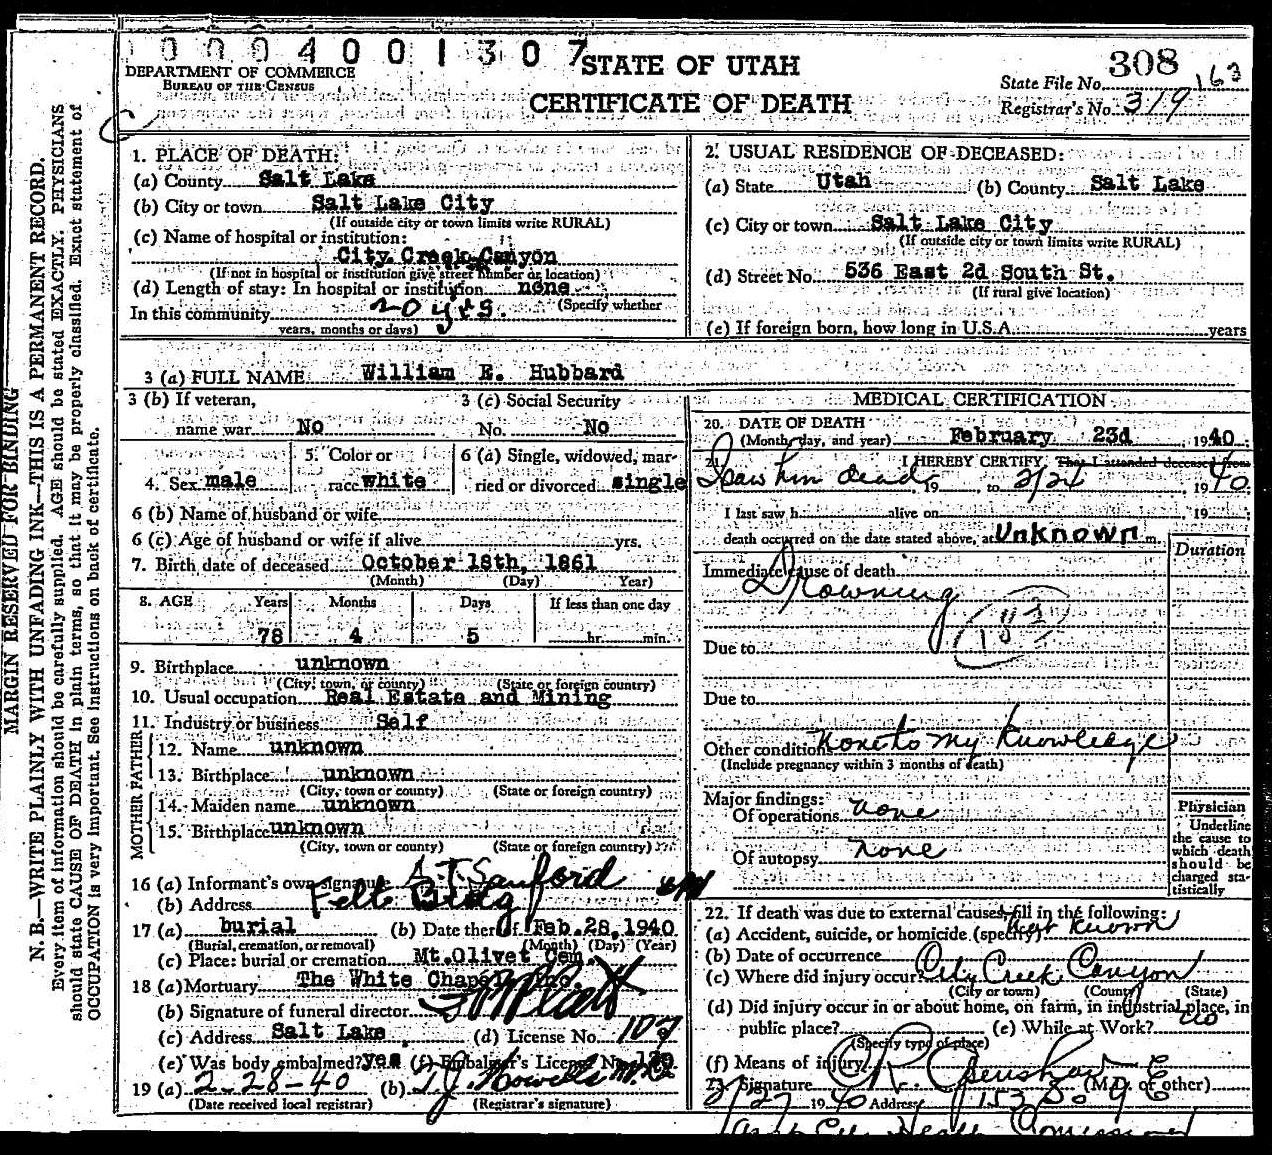 0004001307
DEPARTMENT OF COMMERCE
BUREAU OF THE CENSUS
STATE OF UTAH
CERTIFICATE OF DEATH
State File No. 308 163
Registrar's No. 319
MARGIN RESERVED FOR BINDING
N. B.—WRITE PLAINLY WITH UNFADING INK—THIS IS A PERMANENT RECORD.
Every item of information should be carefully supplied. AGE should be stated EXACTLY. PHYSICIANS
should state CAUSE OF DEATH in plain terms, so that it may be properly classified. Exact statement of
OCCUPATION is very important. See instructions on back of certificate.
1. PLACE OF DEATH:
(a) County Salt Lake
(b) City or town Salt Lake City
(If outside city or town limits write RURAL)
(c) Name of hospital or institution:
City Creek Canyon
(If not in hospital or institution give street number or location)
(d) Length of stay: In hospital or institution none
(Specify whether
In this community 20 yrs.
years, months or days)
2. USUAL RESIDENCE OF DECEASED:
(a) State Utah (b) County Salt Lake
(c) City or town Salt Lake City
(If outside city or town limits write RURAL)
(d) Street No. 536 East 2d South St.
(If rural give location)
(e) If foreign born, how long in U.S.A. years
3 (a) FULL NAME William E. Hubbard
3 (b) If veteran, 3 (c) Social Security
name war No No. No
4. Sex male 5. Color or race white 6 (a) Single, widowed, married or divorced single
6 (b) Name of husband or wife
6 (c) Age of husband or wife if alive yrs.
7. Birth date of deceased October 18th, 1861
(Month) (Day) (Year)
8. AGE Years Months Days If less than one day
78 4 5 hr. min.
9. Birthplace unknown
(City, town, or county) (State or foreign country)
10. Usual occupation Real Estate and Mining
11. Industry or business Self
FATHER
12. Name unknown
13. Birthplace unknown
(City, town or county) (State or foreign country)
MOTHER
14. Maiden name unknown
15. Birthplace unknown
(City, town or county) (State or foreign country)
16 (a) Informant's own signature A. T. Sanford
(b) Address Felt Bldg
17 (a) burial (b) Date thereof Feb. 28, 1940
(Burial, cremation, or removal) (Month) (Day) (Year)
(c) Place: burial or cremation Mt. Olivet Cem.
18 (a) Mortuary The White Chapel Inc.
(b) Signature of funeral director
(c) Address Salt Lake (d) License No. 107
(e) Was body embalmed? yes (f) Embalmer's License No.
19 (a) 2-28-40 (b) T. J. Howells M.D.
(Date received local registrar) (Registrar's signature)
MEDICAL CERTIFICATION
20. DATE OF DEATH
(Month, day, and year) February 23d 1940
21. I HEREBY CERTIFY That I attended deceased from
I saw him dead, 19 to 2/24 1940
I last saw h alive on 19
death occurred on the date stated above, at Unknown m.
Duration
Immediate cause of death
Drowning
183
Due to
Due to
Other conditions none to my knowledge
(Include pregnancy within 3 months of death)
Major findings:
Of operations none
Of autopsy none
Physician
Underline
the cause to
which death
should be
charged statistically
22. If death was due to external causes, fill in the following:
(a) Accident, suicide, or homicide (specify) not known
(b) Date of occurrence
(c) Where did injury occur? City Creek Canyon
(City or town) (County) (State)
(d) Did injury occur in or about home, on farm, in industrial place, in
public place? (e) While at Work? no
(Specify type of place)
(f) Means of injury
23. Signature (M.D. or other)
2/27 1940 Address 153 So 9 E